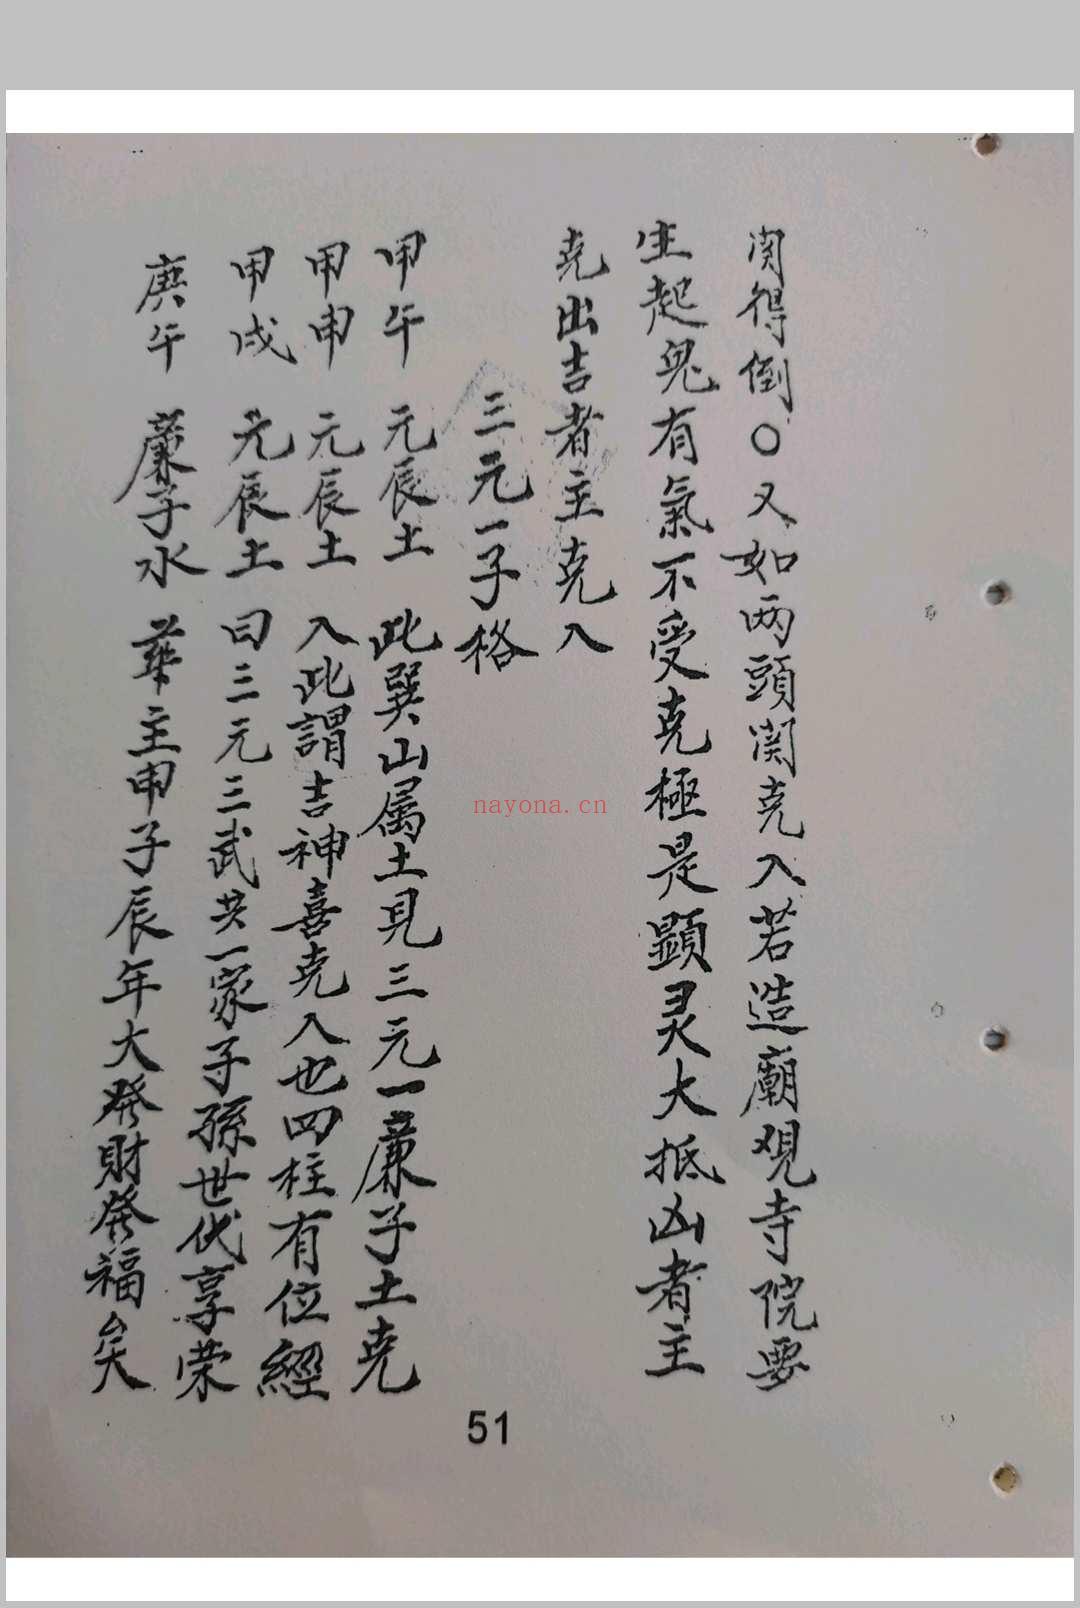 関得倒〇又如両頭関克入若造廟观寺院要
生起鬼有氣不受克極是顕灵大抵凶者主
克出吉者主克入
三元一子格
甲午 元辰土 此巽山属土見三元一廉子土克
甲申 元辰土 入此謂吉神喜克入也四柱有位經
甲戌 元辰土 曰三元三武共一家子孫世代享荣
庚午 廉子水 華主申子辰年大発財発福矣
51
nayona.cn